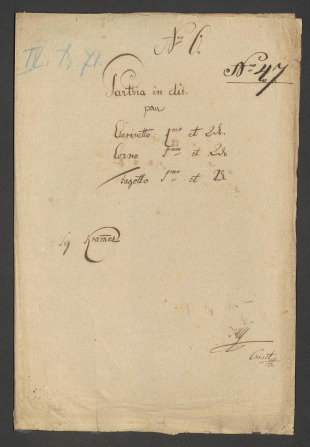 Nro 6.
IV. B. 71.
Nro 47
Parthia in dis.
pour
Clarinetto 1mo et 2do.
Corno 1mo et 2do
Fagotto 1mo et 2do
Sig Kramer